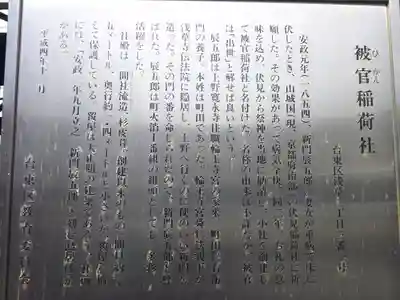 ひかん
被官稲荷社
台東区浅草二丁目三番一号
安政元年(一八五四)、新門辰五郎の妻女が重病で床に
伏したとき、山城国(現、京都府南部)の伏見稲荷社に祈
願した。その効果があって病気全快、同二年、お礼の意
味を込め、伏見から祭神を当地に勧請し、小社を創建し
て被官稲荷社と名付けた。名称の由来は不詳だが、被官
は「出世」と解せば良いという。
辰五郎は上野寛永寺住職輪王寺宮の家来、町田仁右衛
門の養子。本姓は町田であった。輪王寺宮舜仁法親王が
浅草寺伝法院に隠居し、上野へ行くのに便のいい新門を
造った。その門の番を命じられたので、新門辰五郎と呼
ばれた。辰五郎は町火消十番組の組頭としても
活躍をした。
社殿は一間社流造、杉皮葺。創建以来のもの。間口約一・
五メートル、奥行約一・四メートルと小さいが、
て保護している。覆屋は大正期の建築である。
には「安政二年九月立之 新門辰五郎」
がある。
平成四年十一月
台東区教育委員会